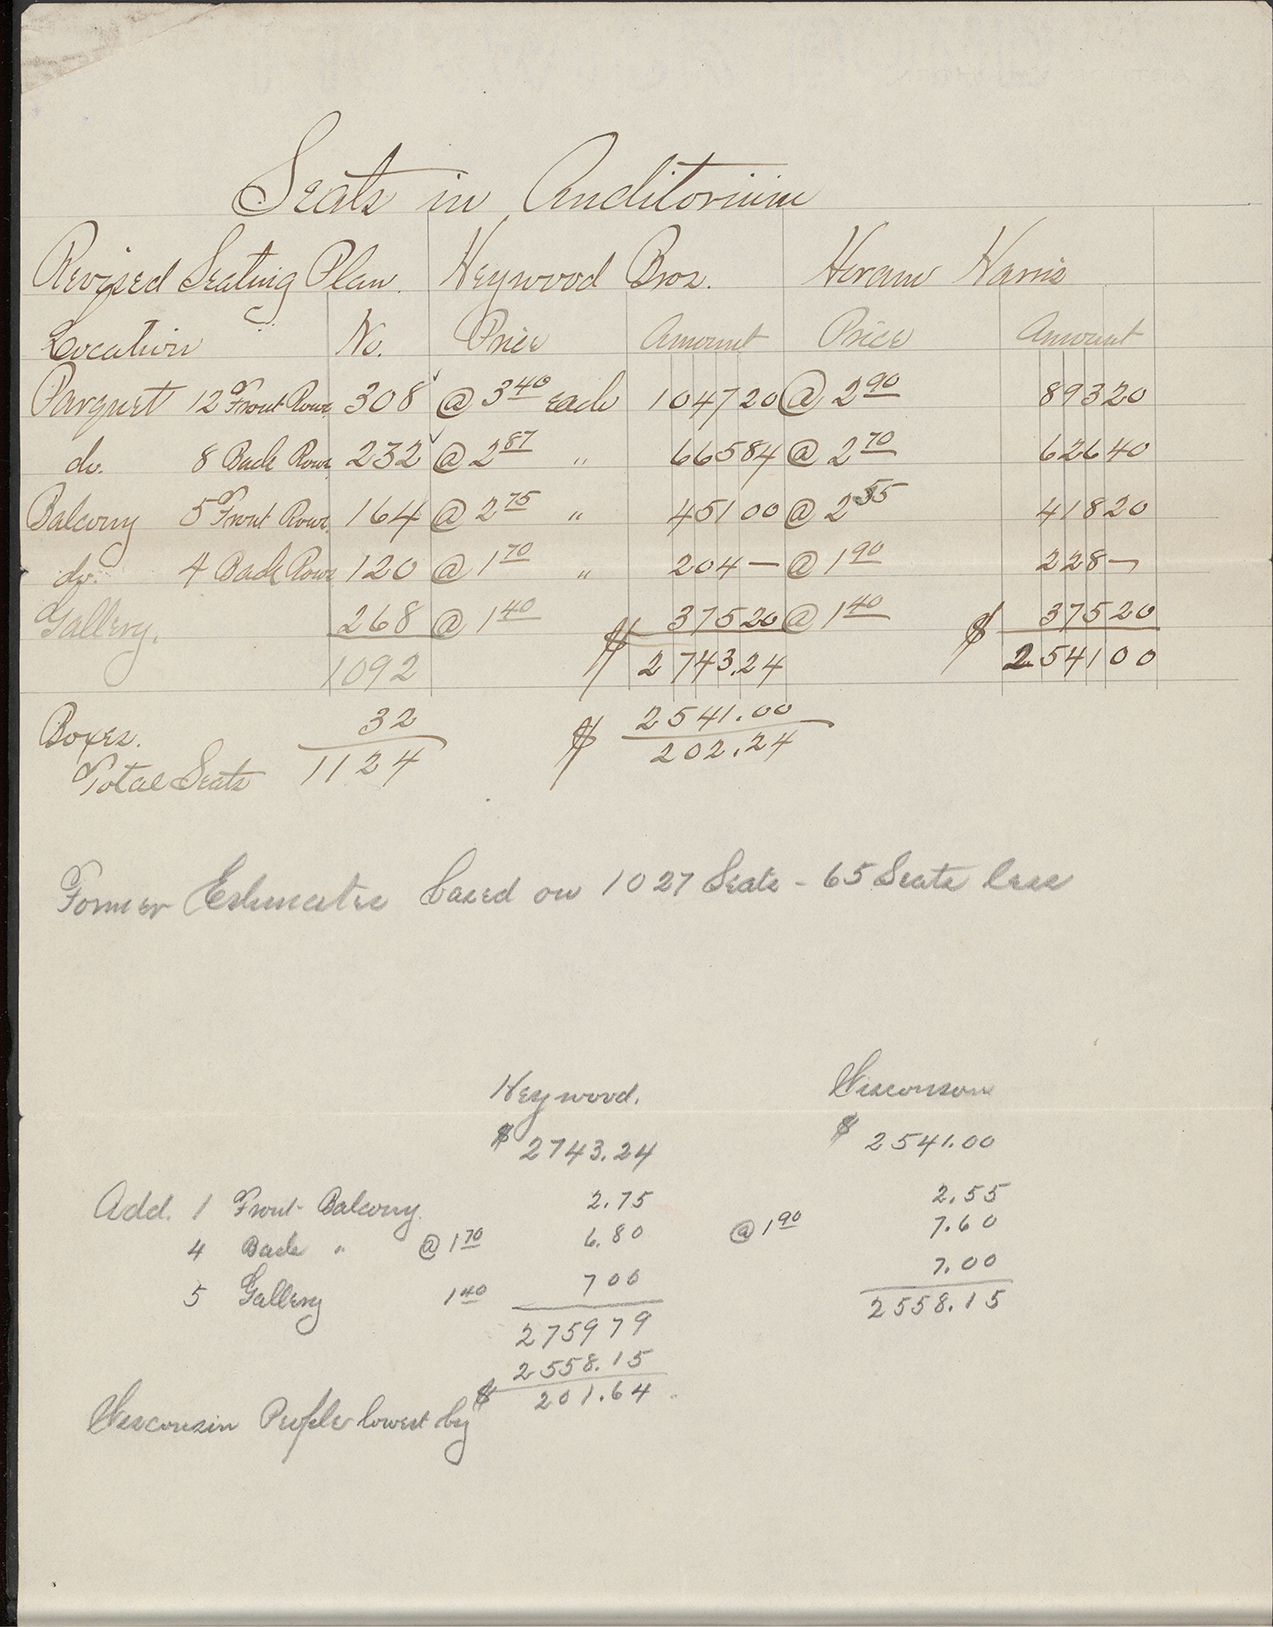 Seats in Auditorium
Revised Seating Plan. Heywood Bros. Hiram Harris
Location No. Price Amount Price Amount
Parquet 12 Front Rows 308 @ 3 40 each 1047 20 @ 2 90 893 20
do. 8 Back Rows 232 @ 2 87 " 665 84 @ 2 70 626 40
Balcony 5 Front Rows 164 @ 2 75 " 451 00 @ 2 55 418 20
do. 4 Back Rows 120 @ 1 70 " 204 — @ 1 90 228 —
Gallery. 268 @ 1 40 $ 375 20 @ 1 40 $ 375 20
1092 2743.24 2541 00
Boxes. 32 $ 2541.00
Total Seats 1124 202.24
Former Estimates based on 1027 Seats - 65 Seats less
Heywood. Wisconson
$ 2743.24 $ 2541.00
Add. 1 Front Balcony. 2.75 2.55
4 Back " @ 1 70 6.80 @ 1 90 7.60
5 Gallery 1 40 7 00 7.00
2759 79 2558.15
2558.15
Wisconsin People lowest by $ 201.64